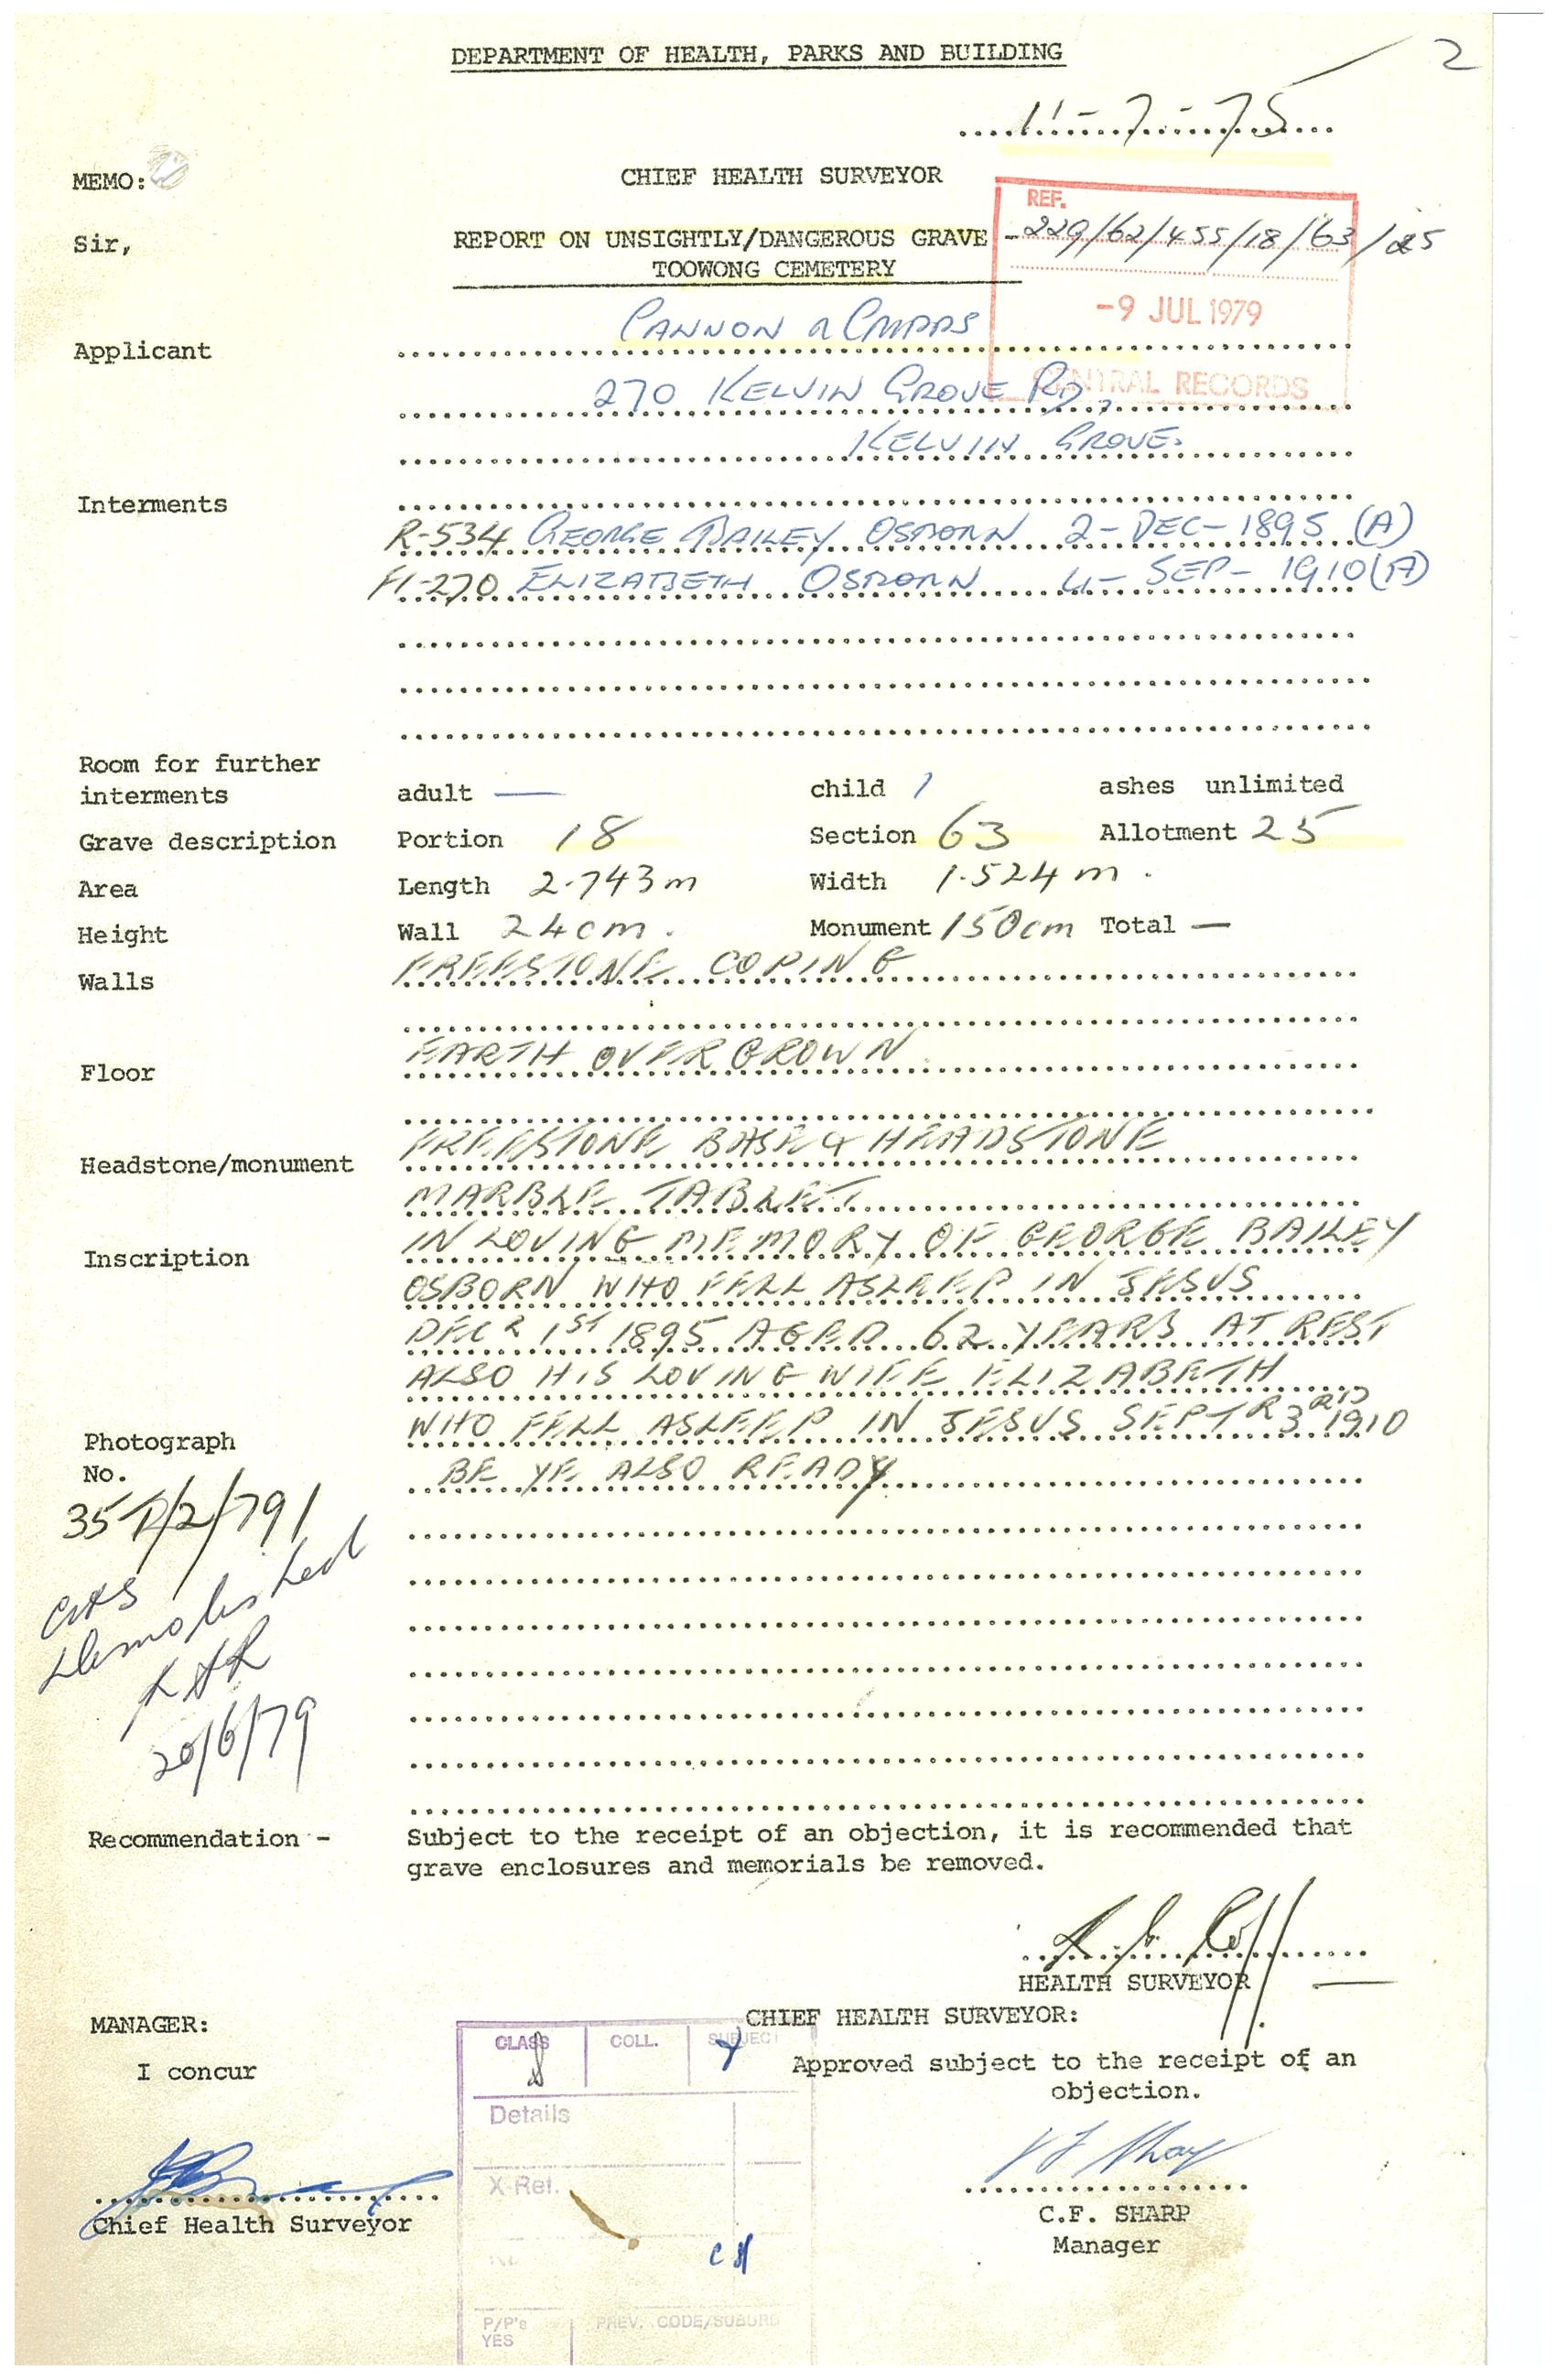 DEPARTMENT OF HEALTH, PARKS AND BUILDING
2
11-7-75
MEMO:
CHIEF HEALTH SURVEYOR
REF.
229/62/455/18/63/25
Sir,
REPORT ON UNSIGHTLY/DANGEROUS GRAVE -
TOOWONG CEMETERY
-9 JUL 1979
CENTRAL RECORDS
Applicant
CANNON & CRIPPS
270 KELVIN GROVE RD,
KELVIN GROVE.
Interments
R-534 GEORGE BAILEY OSBORN 2-DEC-1895 (A)
H-270 ELIZABETH OSBORN 4-SEP-1910 (A)
Room for further
interments adult — child 1 ashes unlimited
Grave description Portion 18 Section 63 Allotment 25
Area Length 2.743m Width 1.524m.
Height Wall 24cm. Monument 150cm Total —
Walls FREESTONE COPING
Floor EARTH OVERGROWN
Headstone/monument FREESTONE BASE & HEADSTONE
MARBLE TABLET
Inscription IN LOVING MEMORY OF GEORGE BAILEY
OSBORN WHO FELL ASLEEP IN JESUS
DECR 1ST 1895 AGED 62 YEARS AT REST
ALSO HIS LOVING WIFE ELIZABETH
WHO FELL ASLEEP IN JESUS SEPTR 3RD 1910
BE YE ALSO READY
Photograph
No.
35 /2/791
CHS
demolished
20/6/79
Recommendation - Subject to the receipt of an objection, it is recommended that
grave enclosures and memorials be removed.
HEALTH SURVEYOR
MANAGER:
CHIEF HEALTH SURVEYOR:
I concur
Approved subject to the receipt of an
objection.
CLASS COLL. SUBJECT
Details
X-Ref.
P/P's
YES
PREV. CODE/SUBURB
Chief Health Surveyor
C.F. SHARP
Manager